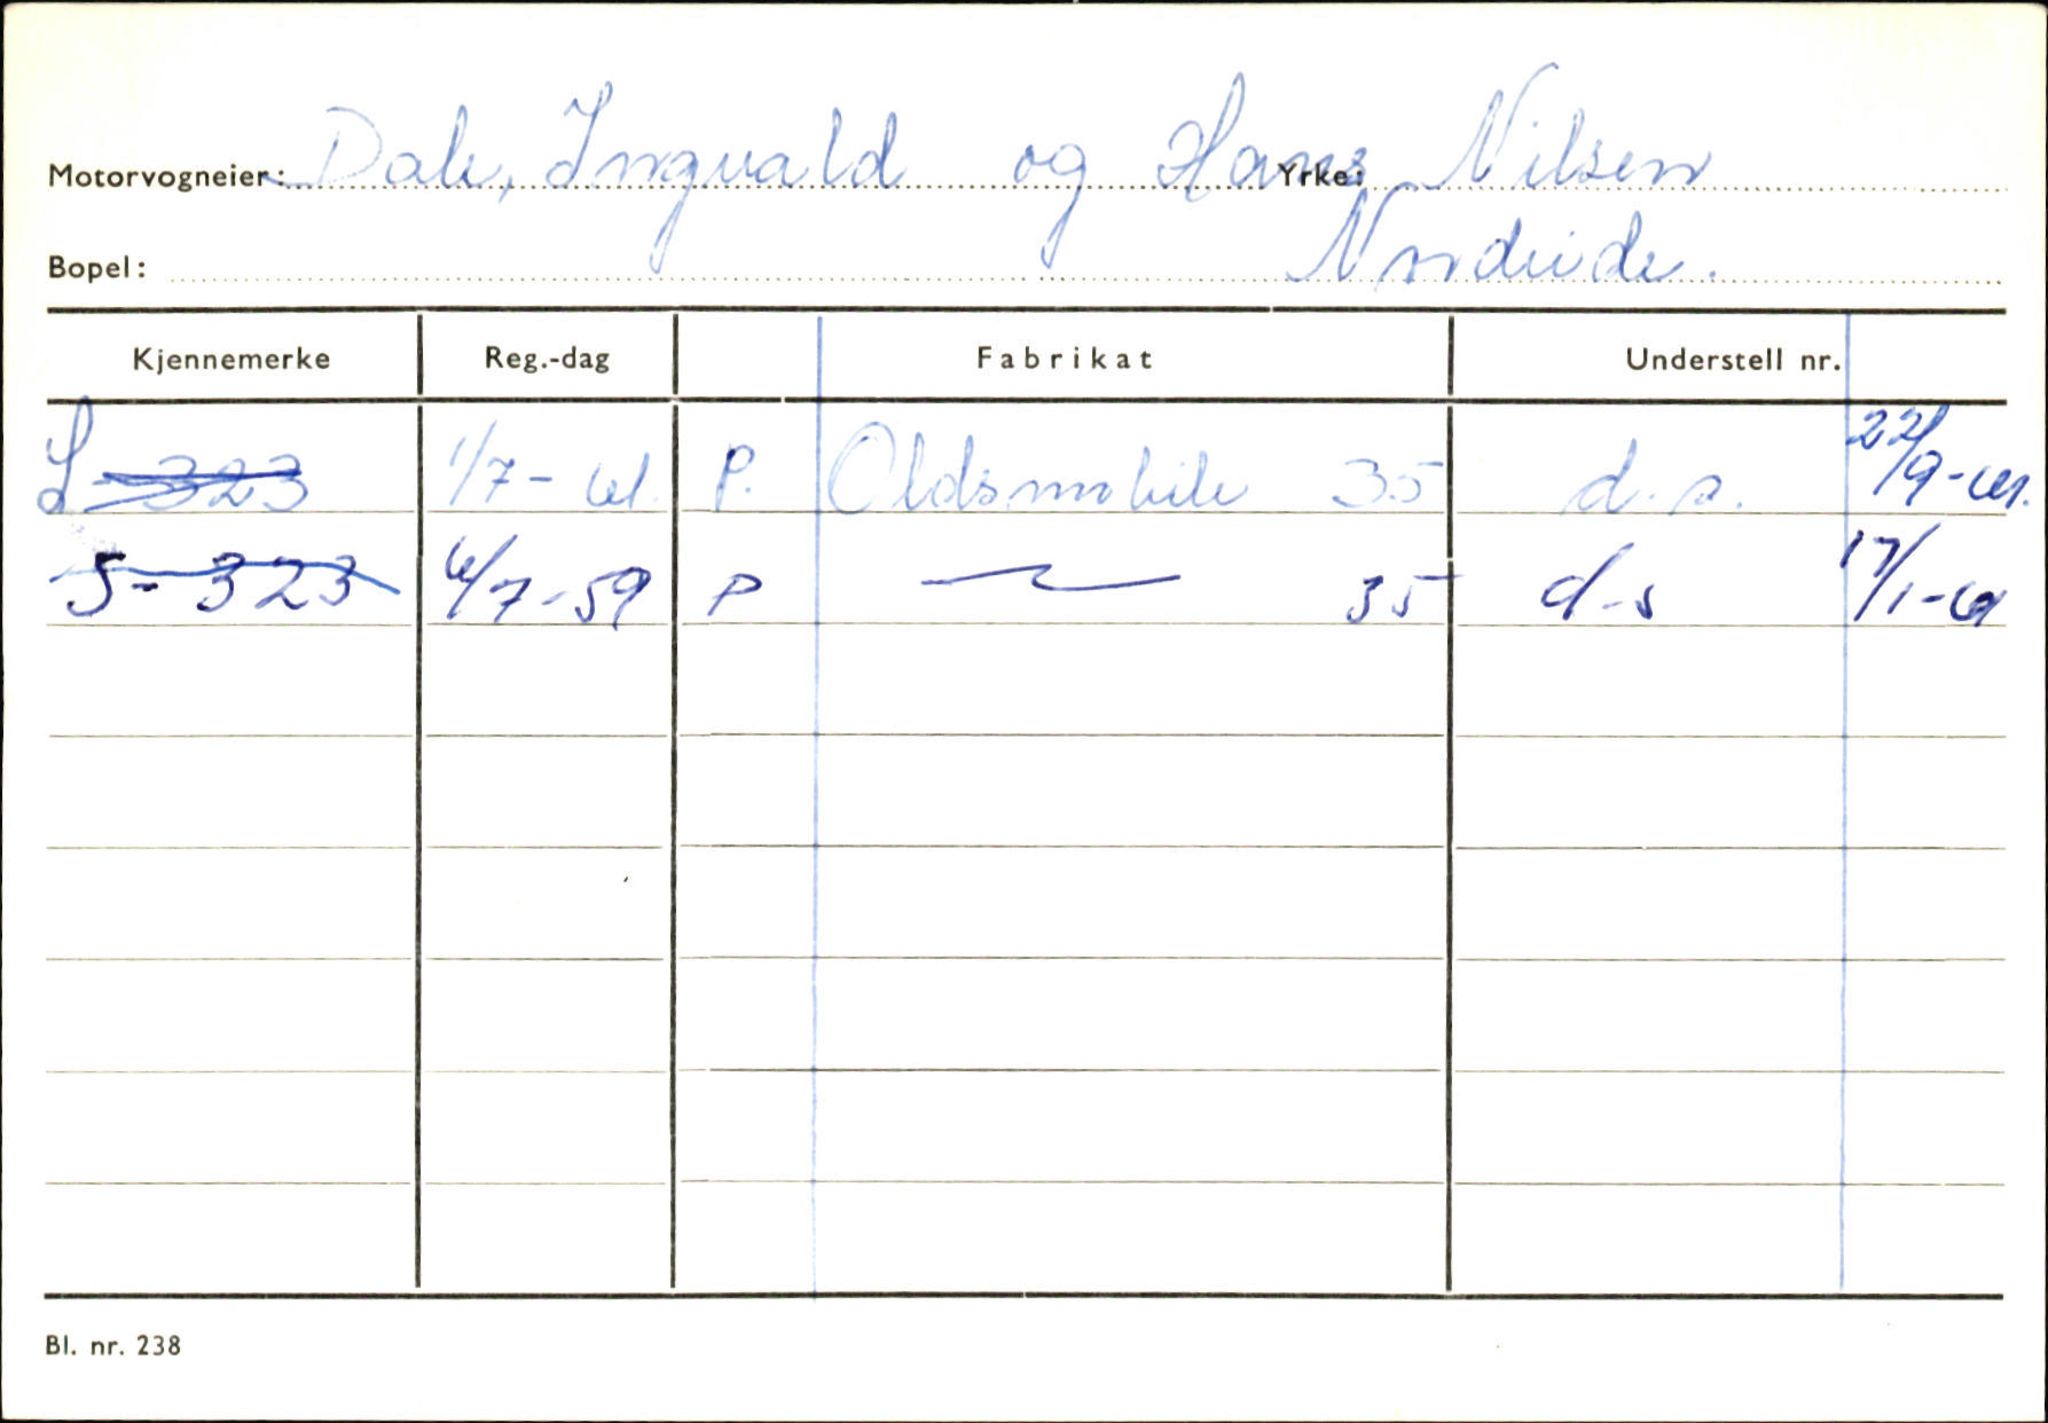 Motorvogneier: Dale, Ingvald og Hans Nilsen Yrke:
Bopel: Nordeide.
Kjennemerke Reg.-dag Fabrikat Understell nr.
S-323 1/7-61 P. Oldsmobile 35 d.s. 22/9-61.
S-323 6/7-59 P 35 d-s 17/1-61
Bl. nr. 238